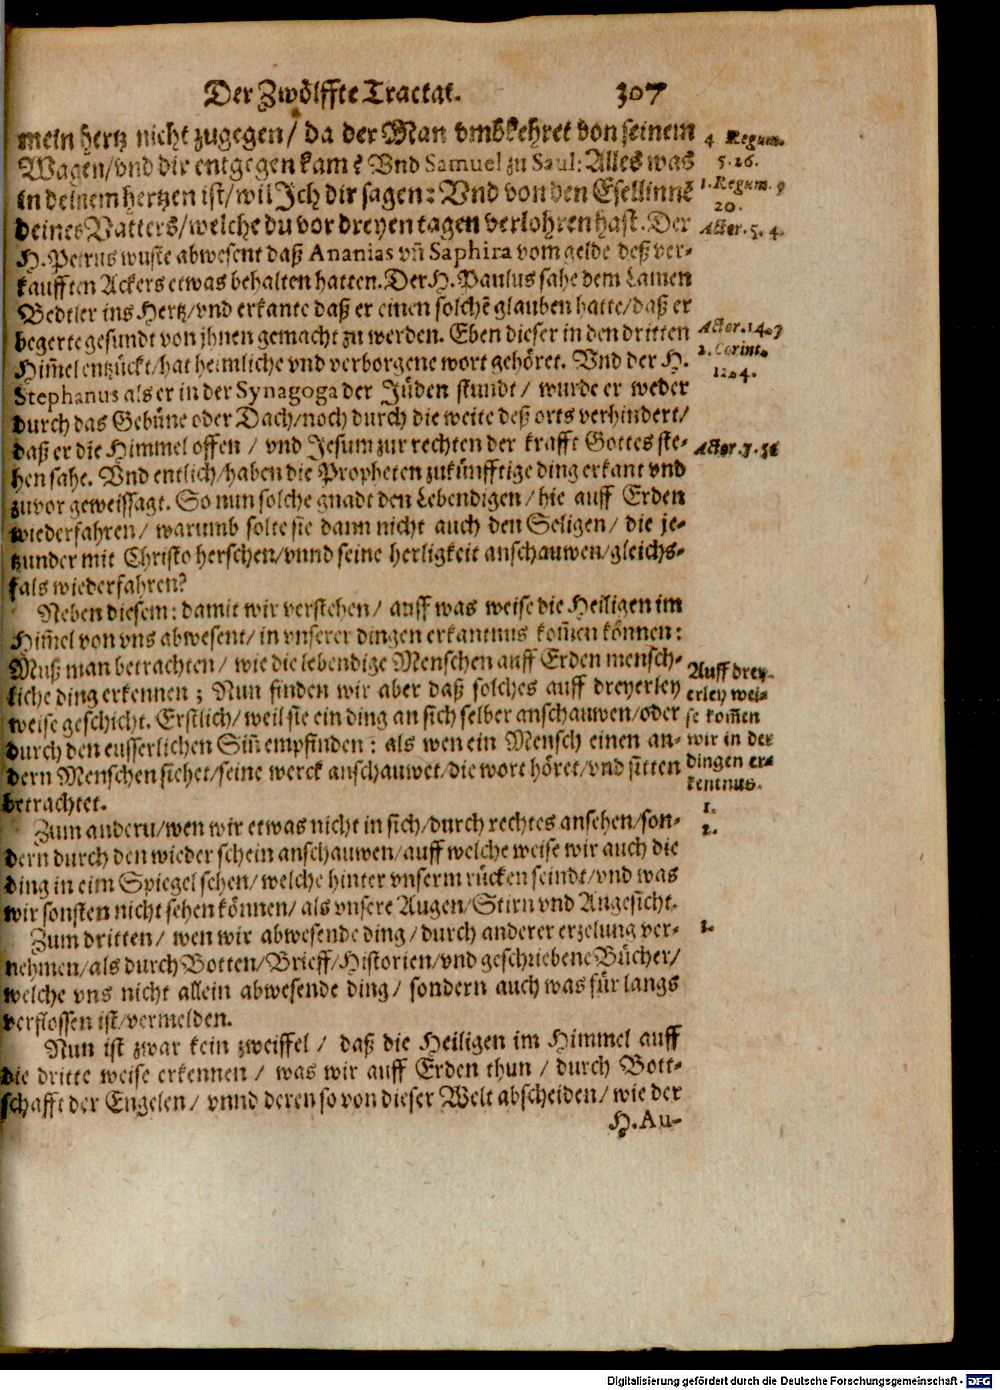 Der Zwölffte Tractat. 307
mein hertz nicht zugegen/ da der Man vmbkehret von seinem
Wagen/vnd dir entgegen kam? Vnd Samuel zu Saul: Alles was
in deinem hertzen ist/wil Jch dir sagen: Vnd von den Esellinnē
deines Vatters/welche du vor dreyen tagen verlohren hast. Der
H. Petrus wuste abwesent daß Ananias vñ Saphira vom gelde deß ver-
kaufften Ackers etwas behalten hatten. Der H. Paulus sahe dem Lamen
Bedtler ins Hertz/vnd erkante daß er einen solchē glauben hatte/daß er
begerte gesundt von jhnen gemacht zu werden. Eben dieser in den dritten
Him̄el entzückt/hat heimliche vnd verborgene wort gehöret. Vnd der H.
Stephanus als er in der Synagoga der Jüden stundt/ wurde er weder
durch das Gebüne oder Dach/noch durch die weite deß orts verhindert/
daß er die Himmel offen / vnd Jesum zur rechten der krafft Gottes ste-
hen sahe. Vnd entlich/haben die Propheten zukünfftige ding erkant vnd
zuvor geweissagt. So nun solche gnadt den Lebendigen/ hie auff Erden
wiederfahren/ warumb solte sie dann nicht auch den Seligen/ die je-
tzunder mit Christo herschen/vnnd seine herligkeit anschauwen/gleichs-
fals wiederfahren?
Neben diesem: damit wir verstehen/ auff was weise die Heiligen im
Him̄el von vns abwesent/in vnserer dingen erkantnus kom̄en können:
Muß man betrachten/ wie die lebendige Menschen auff Erden mensch-
liche ding erkennen; Nun finden wir aber daß solches auff dreyerley
weise geschicht. Erstlich/weil sie ein ding an sich selber anschauwen/oder
durch den eusserlichen Siñ empfinden: als wen ein Mensch einen an-
dern Menschen siehet/seine werck anschauwet/die wort höret/vnd sitten
betrachtet.
Zum andern/wen wir etwas nicht in sich/durch rechtes ansehen/son-
dern durch den wieder schein anschauwen/auff welche weise wir auch die
ding in eim Spiegel sehen/welche hinter vnserm rücken seindt/vnd was
wir sonsten nicht sehen können/als vnsere Augen/Stirn vnd Angesicht.
Zum dritten/ wen wir abwesende ding/durch anderer erzelung ver-
nehmen/als durch Botten/Brieff/Historien/vnd geschriebene Bücher/
welche vns nicht allein abwesende ding/ sondern auch was für langs
verflossen ist/vermelden.
Nun ist zwar kein zweiffel/ daß die Heiligen im Himmel auff
die dritte weise erkennen/ was wir auff Erden thun/ durch Bott-
schafft der Engelen/ vnnd deren so von dieser Welt abscheiden/ wie der
H. Au-
4 Regum.
5.26.
1. Regum. 9
20.
Actor. 5. 4.
Actor. 14.9
2. Corint.
12.4.
Actor. 7. 56
Auff drey-
erley wei-
se kom̄en
wir in der
dingen er-
kentnus.
1.
2.
3.
Digitalisierung gefördert durch die Deutsche Forschungsgemeinschaft - DFG